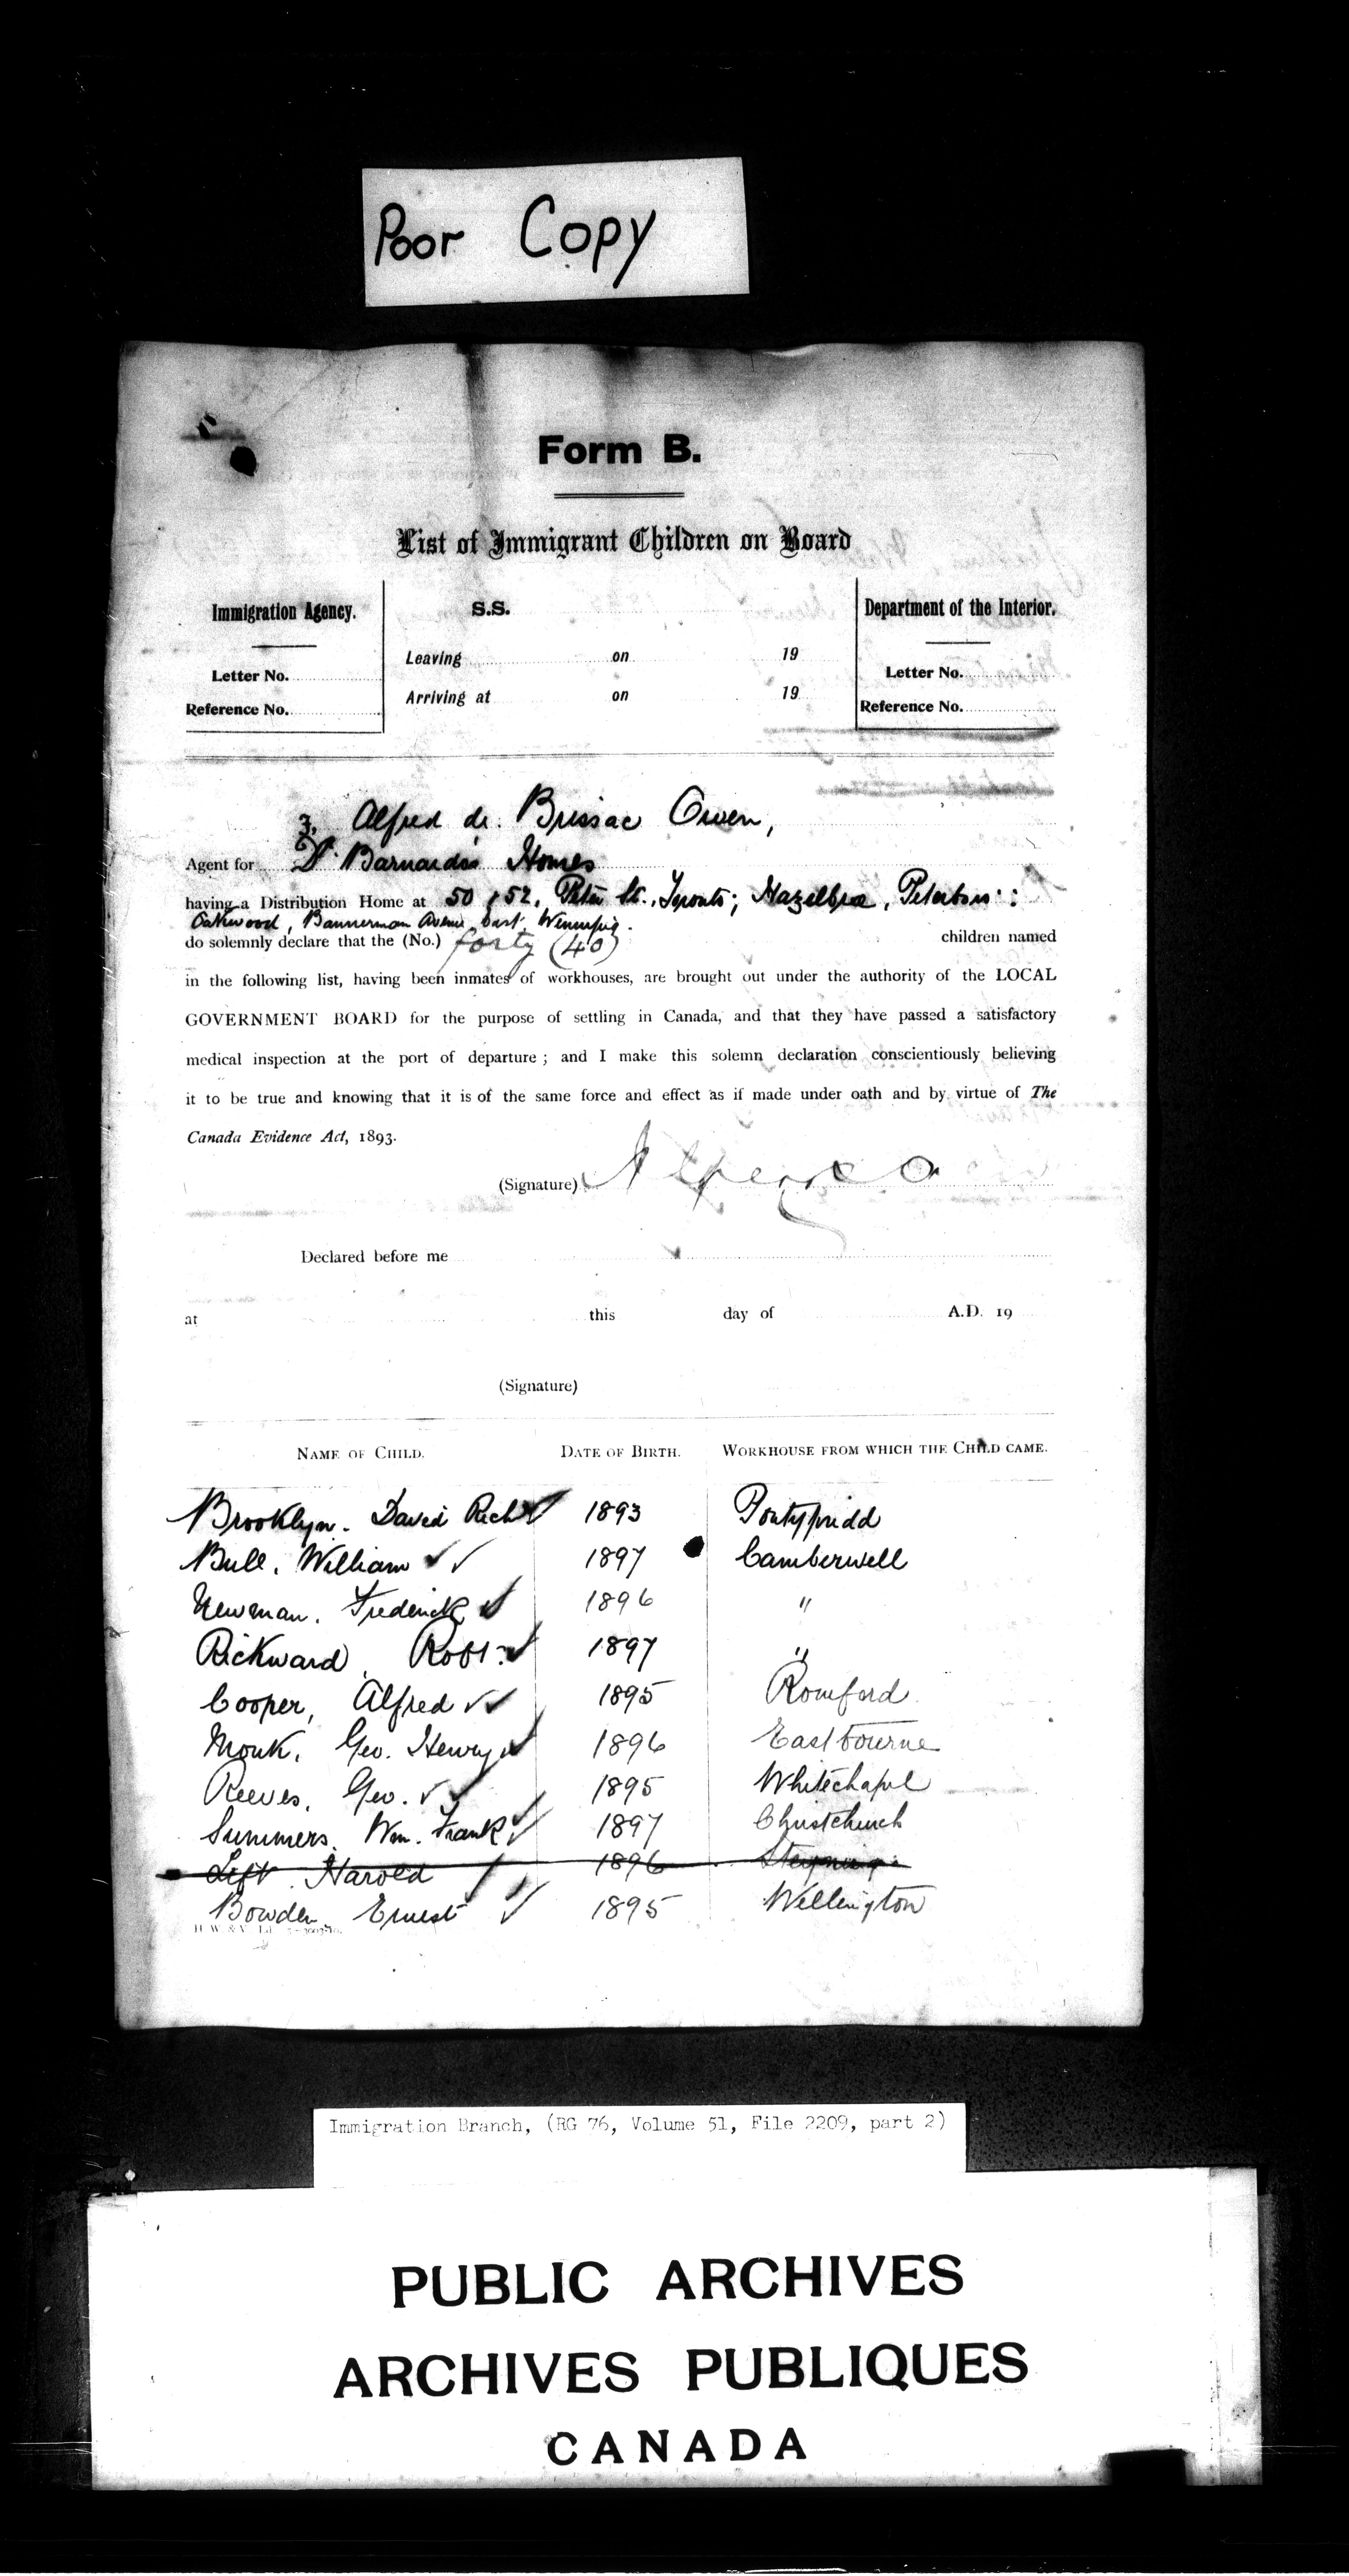 Poor Copy
Form B.
List of Immigrant Children on Board
Immigration Agency.
Letter No.
Reference No.
S.S.
Leaving on 19
Arriving at on 19
Department of the Interior.
Letter No.
Reference No.
I, Alfred de Brissac Owen,
Agent for Dr Barnardo's Homes
having a Distribution Home at 50 & 52, Peter St., Toronto; Hazelbrae, Peterboro:
Oakwood, Bannerman Avenue East Winnipeg.
do solemnly declare that the (No.) forty (40) children named
in the following list, having been inmates of workhouses, are brought out under the authority of the LOCAL
GOVERNMENT BOARD for the purpose of settling in Canada, and that they have passed a satisfactory
medical inspection at the port of departure; and I make this solemn declaration conscientiously believing
it to be true and knowing that it is of the same force and effect as if made under oath and by virtue of The
Canada Evidence Act, 1893.
(Signature)
Declared before me
at this day of A.D. 19
(Signature)
NAME OF CHILD. DATE OF BIRTH. WORKHOUSE FROM WHICH THE CHILD CAME.
Brooklyn. David Richd 1893 Pontypridd
Bull. William 1897 Camberwell
Newman. Frederick 1896 "
Rickward, Robt. 1897 "
Cooper, Alfred 1895 Romford
Monk. Geo. Henry 1896 Eastbourne
Reeves. Geo. 1895 Whitechapel
Summers. Wm. Frank 1897 Christchurch
Left. Harold 1896 Steyning
Bowden Ernest 1895 Wellington
Immigration Branch, (RG 76, Volume 51, File 2209, part 2)
PUBLIC ARCHIVES
ARCHIVES PUBLIQUES
CANADA